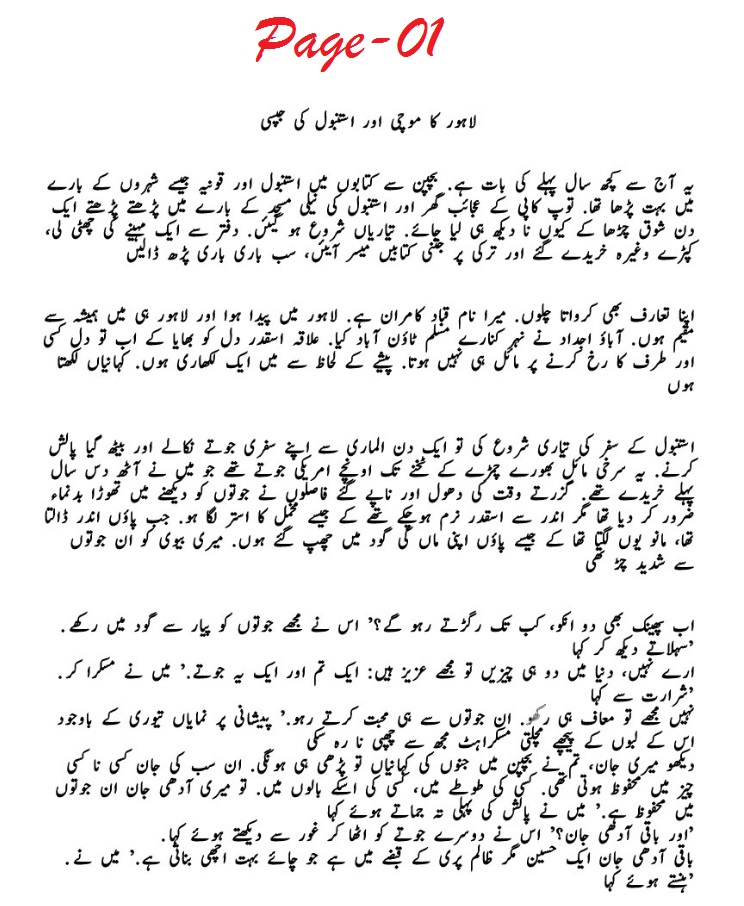 Page-01
لاہور کا موچی اور استنبول کی جپسی
یہ آج سے کچھ سال پہلے کی بات ہے. بچپن سے کتابوں میں استنبول اور قونیہ جیسے شہروں کے بارے
میں بہت پڑھا تھا. توپ کاپی کے عجائب گھر اور استنبول کی نیلی مسجد کے بارے میں پڑھتے پڑھتے ایک
دن شوق چڑھا کے کیوں نا دیکھ ہی لیا جائے. تیاریاں شروع ہو گیئں. دفتر سے ایک مہینے کی چھٹی لی،
کپڑے وغیرہ خریدے گئے اور ترکی پر جتنی کتابیں میسر آیئں، سب باری باری پڑھ ڈالیں
اپنا تعارف بھی کرواتا چلوں. میرا نام قباد کامران ہے. لاہور میں پیدا ہوا اور لاہور ہی میں ہمیشہ سے
مقیم ہوں. آباؤ اجداد نے نہر کنارے مسلم ٹاؤن آباد کیا. علاقہ اسقدر دل کو بھایا کے اب تو دل کسی
اور طرف کا رخ کرنے پر مائل ہی نہیں ہوتا. پیشے کے لحاظ سے میں ایک لکھاری ہوں. کہانیاں لکھتا
ہوں
استنبول کے سفر کی تیاری شروع کی تو ایک دن الماری سے اپنے سفری جوتے نکالے اور بیٹھ گیا پالش
کرنے. یہ سرخی مائل بھورے چمڑے کے ٹخنے تک اونچے امریکی جوتے تھے جو میں نے آٹھ دس سال
پہلے خریدے تھے. گزرتے وقت کی دھول اور ناپے گئے فاصلوں نے جوتوں کو دیکھنے میں تھوڑا بدنماء
ضرور کر دیا تھا مگر اندر سے اسقدر نرم ہوچکے تھے کے جیسے مخمل کا استر لگا ہو. جب پاؤں اندر ڈالتا
تھا، مانو یوں لگتا تھا کے جیسے پاؤں اپنی ماں کی گود میں چھپ گئے ہوں. میری بیوی کو ان جوتوں
سے شدید چڑ تھی
اب پھینک بھی دو انکو، کب تک رگڑتے رہو گے؟' اس نے مجھے جوتوں کو پیار سے گود میں رکھے.
'سہلاتے دیکھ کر کہا
ارے نہیں، دنیا میں دو ہی چیزیں تو مجھے عزیز ہیں: ایک تم اور ایک یہ جوتے.' میں نے مسکرا کر.
'شرارت سے کہا
نہیں مجھے تو معاف ہی رکھو. ان جوتوں سے ہی محبت کرتے رہو.' پیشانی پر نمایاں تیوری کے باوجود
اس کے لبوں کے پیچھے مچلتی مسکراہٹ مجھ سے چھپی نا رہ سکی
دیکھو میری جان، تم نے بچپن میں جنوں کی کہانیاں تو پڑھی ہی ہونگی. ان سب کی جان کسی نا کسی
چیز میں محفوظ ہوتی تھی. کسی کی طوطے میں، کسی کی اسکے بالوں میں. تو میری آدھی جان ان جوتوں
میں محفوظ ہے.' میں نے پالش کی پہلی تہ جماتے ہوئے کہا
'اور باقی آدھی جان؟' اس نے دوسرے جوتے کو اٹھا کر غور سے دیکھتے ہوئے کہا.
باقی آدھی جان ایک حسین مگر ظالم پری کے قبضے میں ہے جو چائے بہت اچھی بناتی ہے.' میں نے.
'ہنستے ہوئے کہا